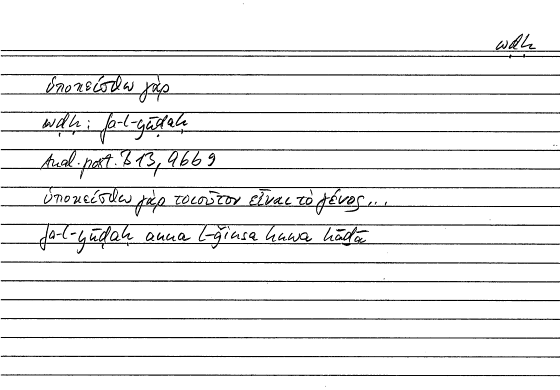 wḍḥ
ὑποκείσθω γὰρ
wḍḥ : fa-l-yūḍaḥ
Anal. post. B 13, 96b9
ὑποκείσθω γὰρ τοιοῦτον εἶναι τὸ γένος...
fa-l-yūḍaḥ anna l-ǧinsa huwa hāḏā